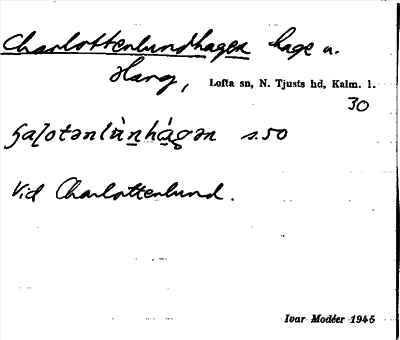 Charlottenlundhagen hage u.
Harg, Lofta sn, N. Tjusts hd, Kalm. l.
30
s.50
Vid Charlottenlund.
Ivar Modéer 1946